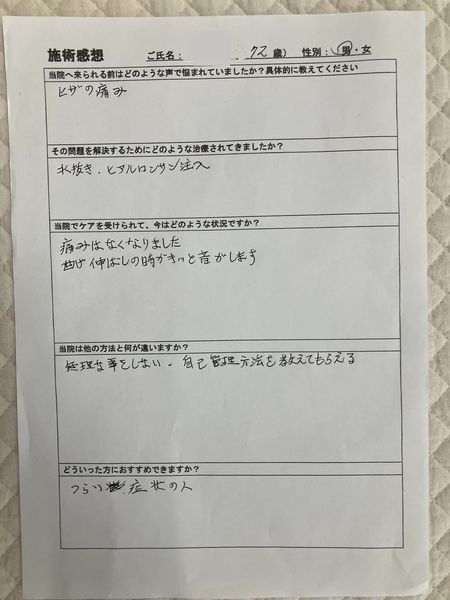 施術感想 ご氏名： 72歳） 性別：男・女
当院へ来られる前はどのような声で悩まれていましたか？具体的に教えてください
ヒザの痛み
その問題を解決するためにどのような治療されてきましたか？
水抜き．ヒアルロンサン注入
当院でケアを受けられて、今はどのような状況ですか？
痛みはなくなりました
曲げ伸ばしの時がキッと音がします
当院は他の方法と何が違いますか？
無理な事をしない．自己管理方法を教えてもらえる
どういった方におすすめできますか？
つらい症状の人